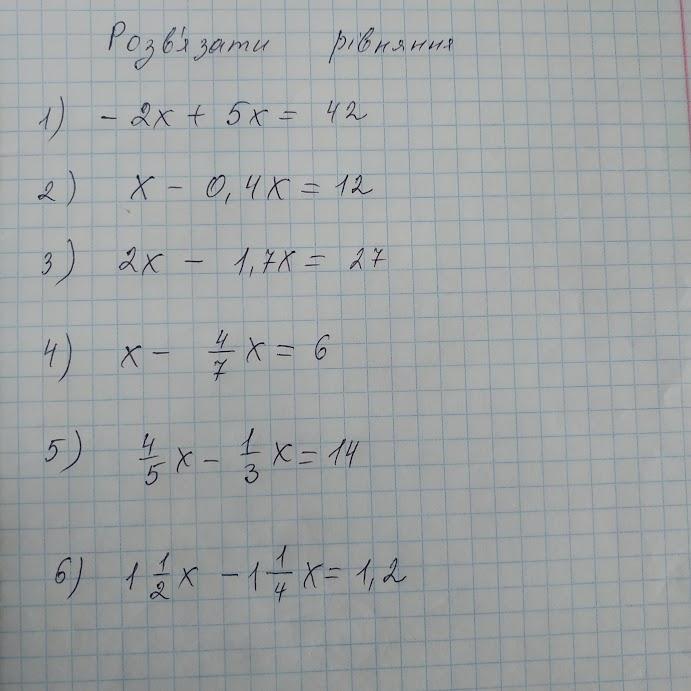 Розв'язати рівняння
1) - 2x + 5x = 42
2) x - 0,4x = 12
3) 2x - 1,7x = 27
4) x - 4/7 x = 6
5) 4/5 x - 1/3 x = 14
6) 1 1/2 x - 1 1/4 x = 1,2